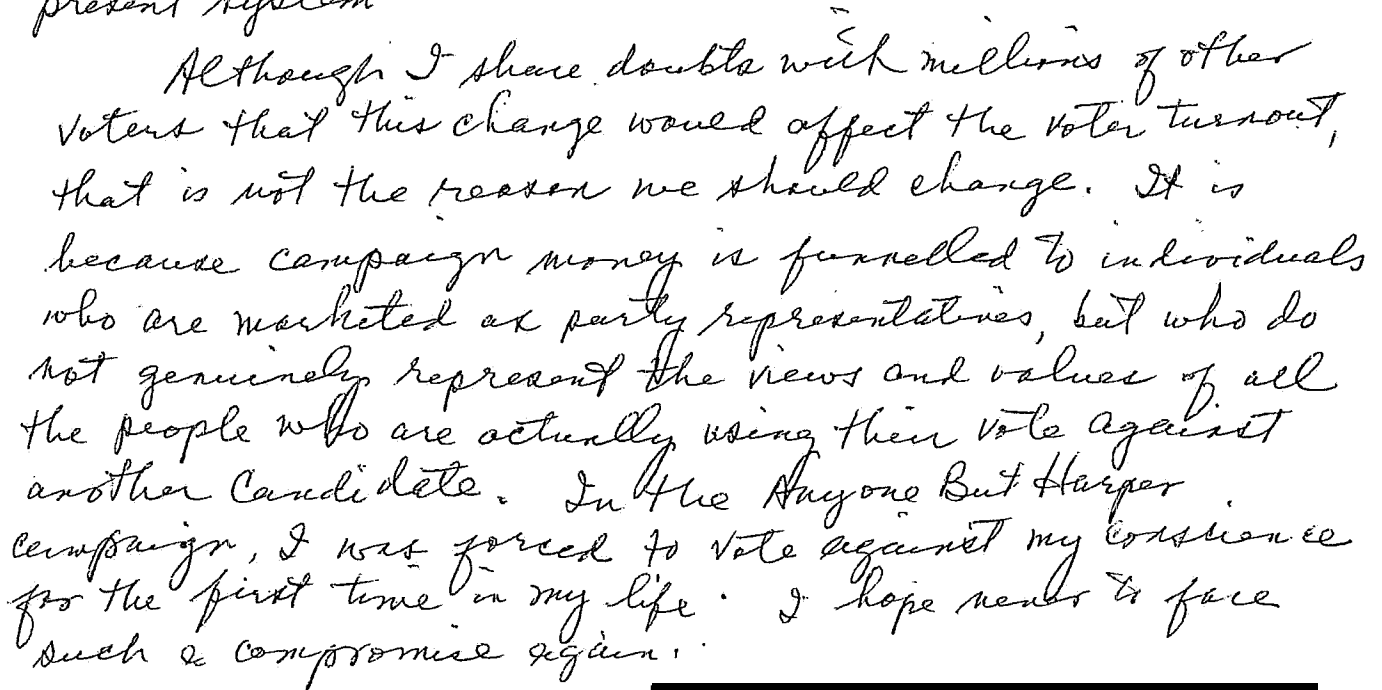 present system
Although I share doubts with millions of other
voters that this change would affect the voter turnout,
that is not the reason we should change. It is
because campaign money is funnelled to individuals
who are marketed as party representatives, but who do
not genuinely represent the views and values of all
the people who are actually using their vote against
another candidate. In the Anyone But Harper
campaign, I was forced to vote against my conscience
for the first time in my life. I hope never to face
such a compromise again.